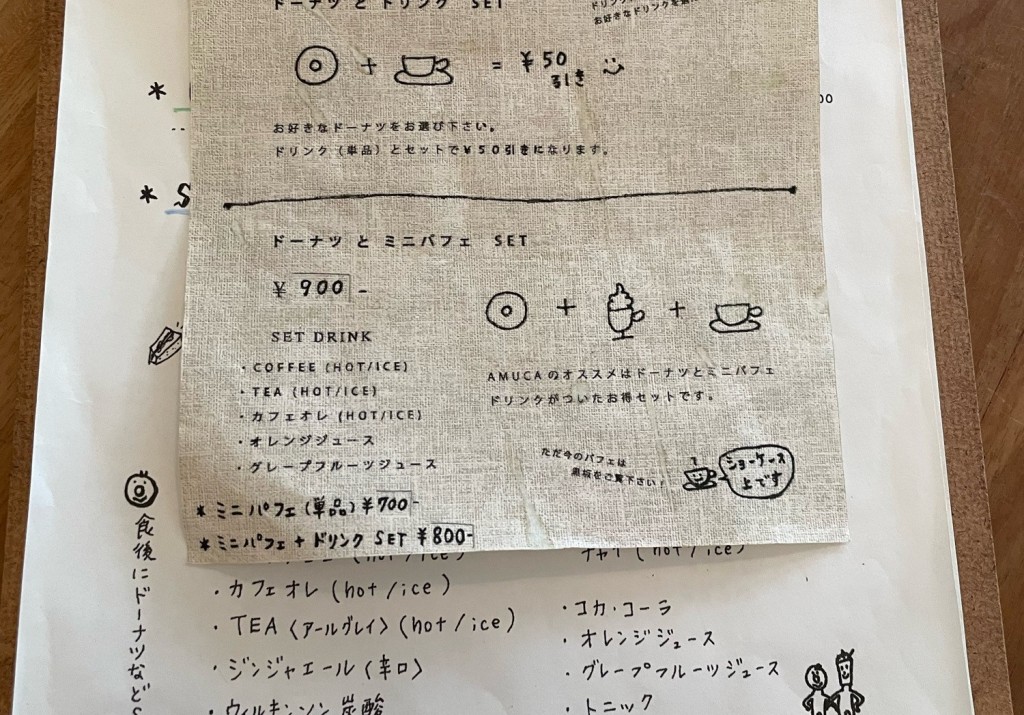 ドーナツ と ドリンク SET
お好きなドリンクを
+ = ¥50
引き
お好きなドーナツをお選び下さい。
ドリンク (単品) とセットで¥50引きになります。
* S
ドーナツ と ミニパフェ SET
¥ 900 -
+ +
SET DRINK
・COFFEE (HOT/ICE)
・TEA (HOT/ICE)
・カフェオレ (HOT/ICE)
・オレンジジュース
・グレープフルーツジュース
AMUCAのオススメはドーナツとミニパフェ
ドリンクがついたお得セットです。
ただ今のパフェは
黒板をご覧下さい!
ショーケース
上です
* ミニパフェ (単品) ¥700-
* ミニパフェ + ドリンク SET ¥800-
チャイ (hot/ice)
・カフェオレ (hot/ice)
・TEA〈アールグレイ〉(hot/ice)
・ジンジャエール〈辛口〉
・ウィルキンソン 炭酸
・コカ・コーラ
・オレンジジュース
・グレープフルーツジュース
・トニック
食後にドーナツなど